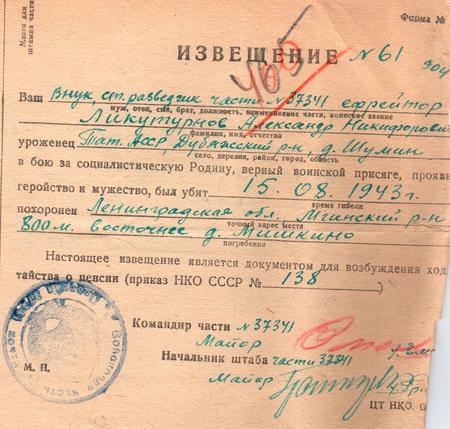 Форма №
Место для
штампа части
ИЗВЕЩЕНИЕ №61
465
904
Ваш внук, ст. разведчик части №37341 ефрейтор
муж, отец, сын, брат, должность, наименование части, воинское звание
Ликутурнов Александр Никифорови
фамилия, имя, отчество
уроженец Тат. Асср, Дубяжский р-н д. Шумин
село, деревня, район, город, область
в бою за социалистическую Родину, верный воинской присяге, прояви
геройство и мужество, был убит 15.08.1943г.
время гибели
похоронен Ленинградская обл. Мгинский р-н
точный адрес места
800 м. восточнее д. Мишкино
погребения
Настоящее извещение является документом для возбуждения ход
тайства о пенсии (приказ НКО СССР № 138)
Командир части №37341
Майор
Начальник штаба части 37341
Майор
М. П.
ЦТ НКО.